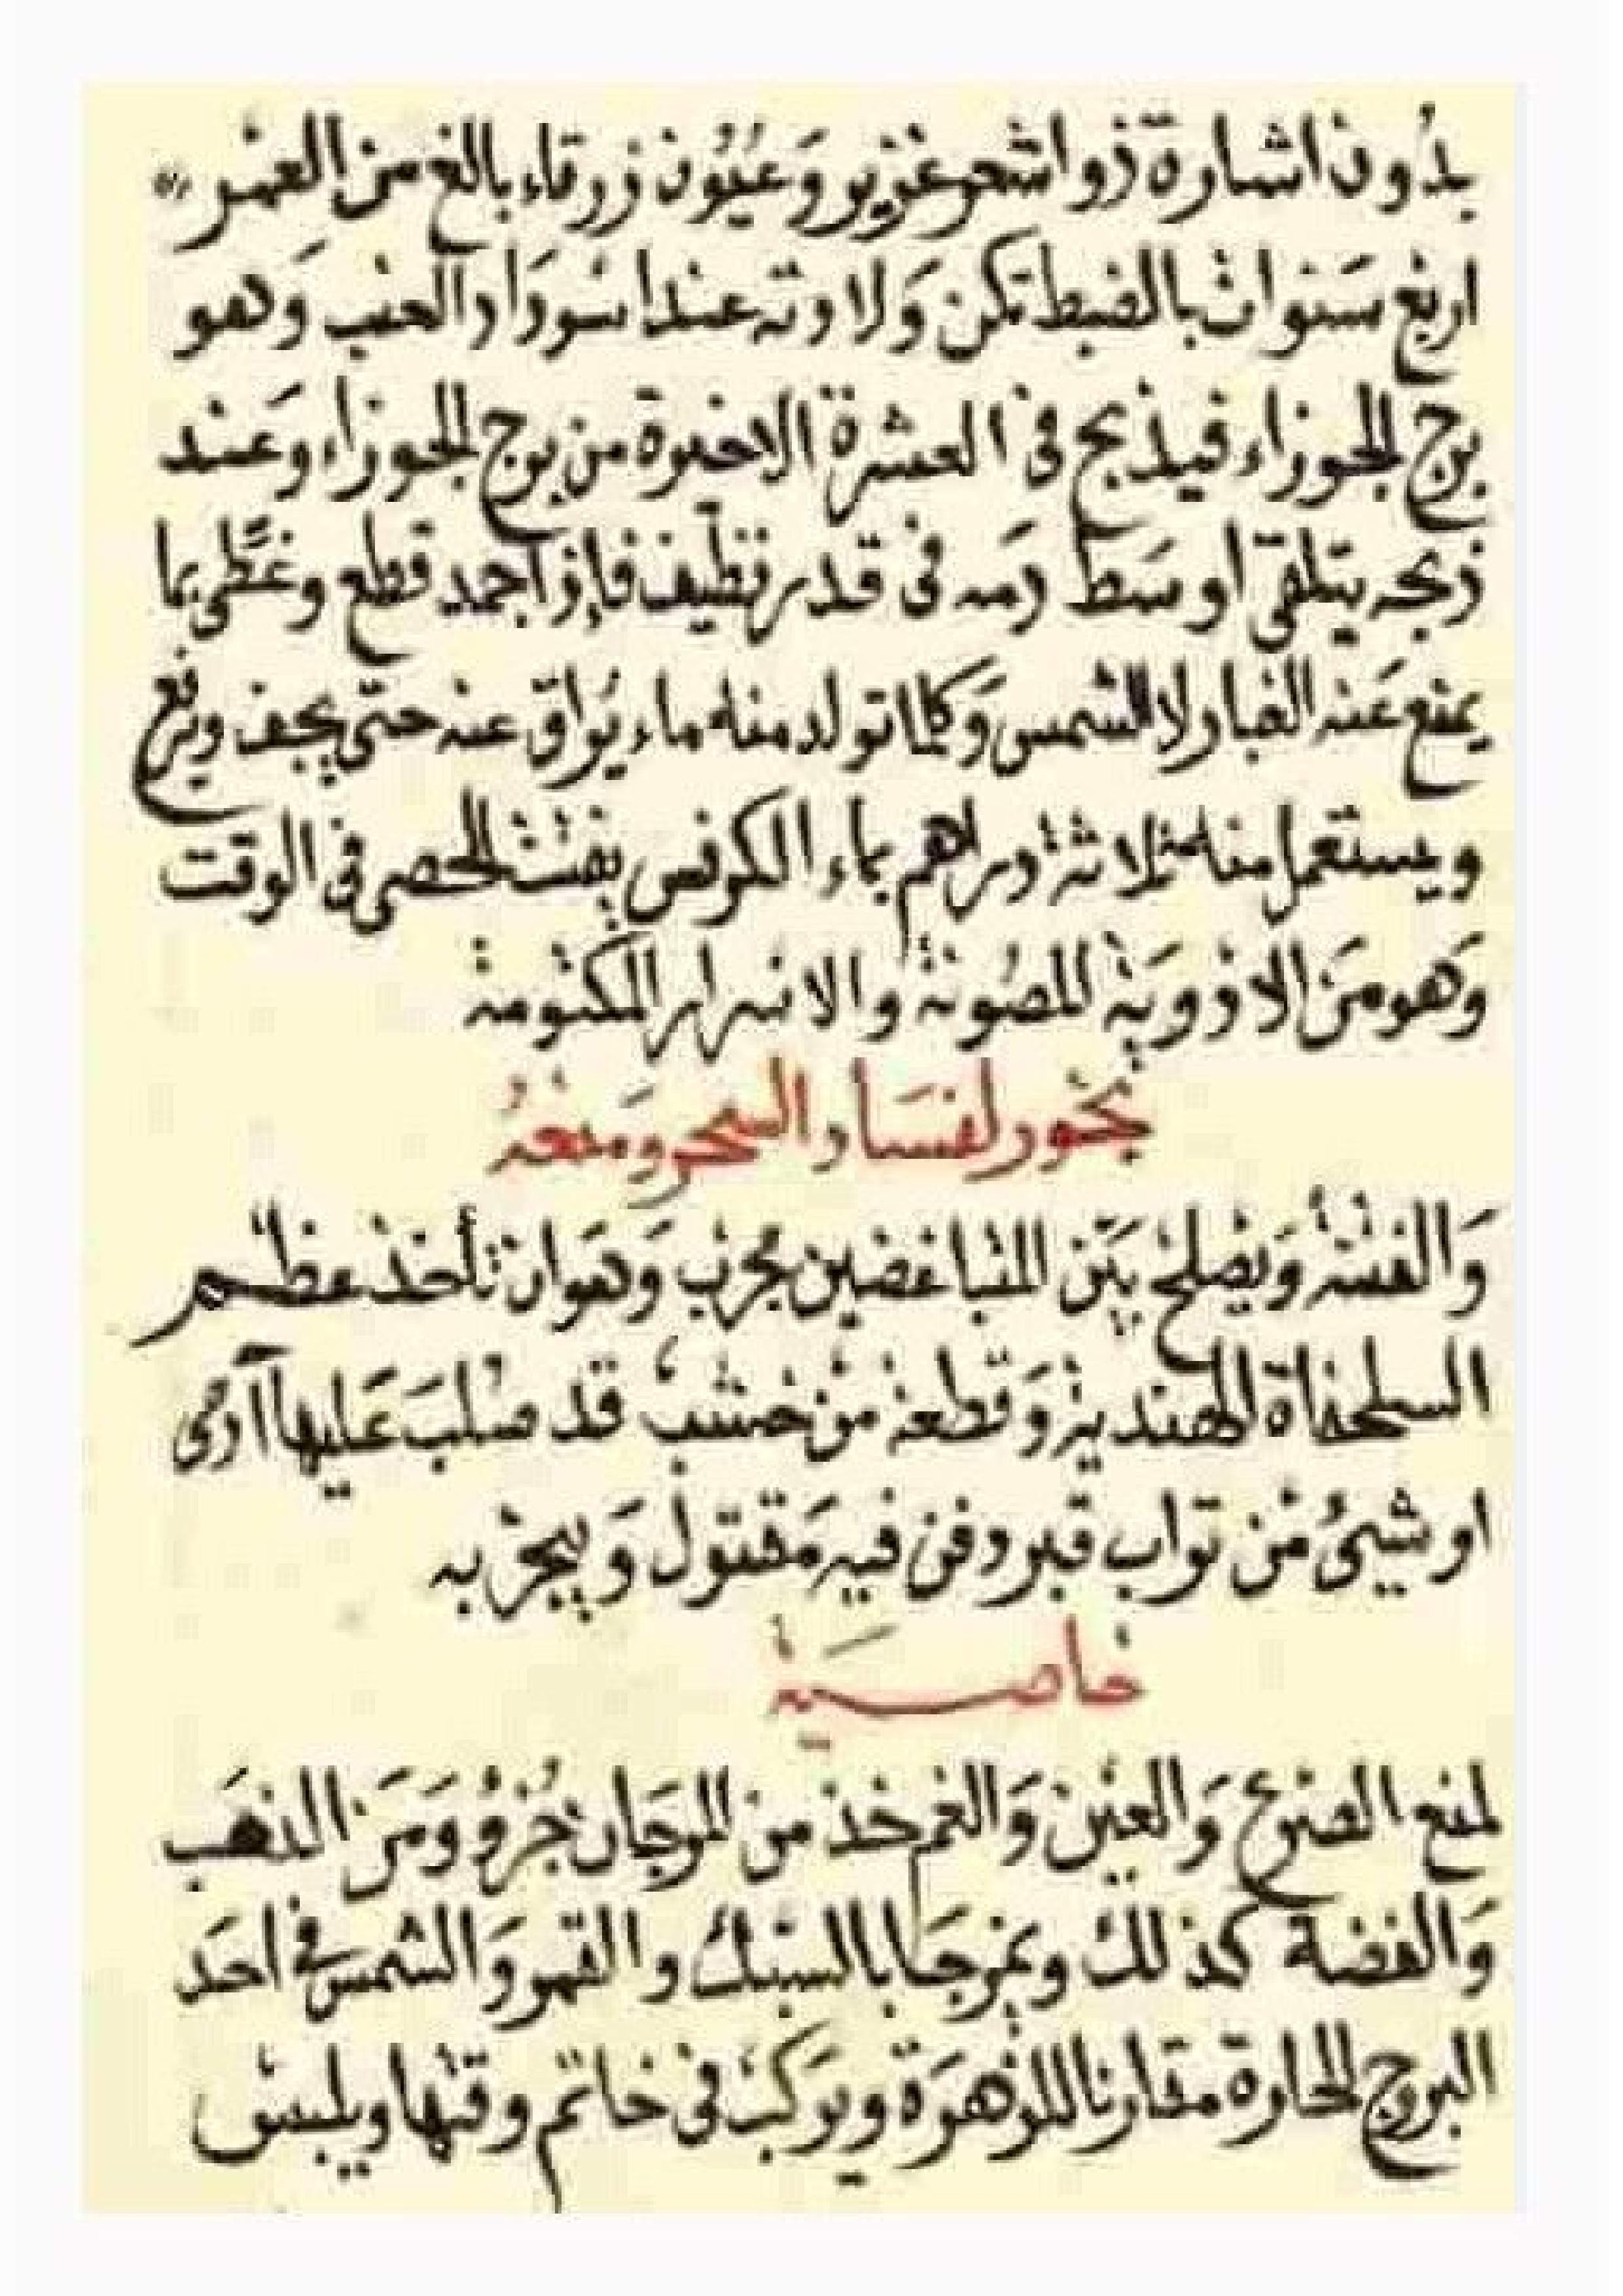 بدُون اشارة ذوا شعر غزير وَعيُون زرقاء بالغ من العمر
اربع سَنوات بالضبط تكن وَلاوته عند اسودَاد العنب وَهو
برج الجوزاء فيذبح في العشرة الاخيرة من برج الجوزاء وَعند
ذبحه يتلقى اوسَط دمه في قدر نظيف فإذا جمد قطع وغطى بما
يمنع عَنه الغبار لا الشمس وَكلما تولد منه ماء يُراق عنه حتى يجف ويرفع
ويستعمل منه ثلاثة دراهم بماء الكرفس يفتت الحصى في الوقت
وَهو مَن الادْوَية المصُونة والاسرار المكتومة
بخور لفسَاد السحر وَمنعهُ
وَالفتنة وَيصلح بَين المتباغضين مجرب وَهوَ ان تأخذ عظم
السلحفاة الهندية وَقطعة من خشب قد صُلبَ عَليها آدمى
او شيئُ من تراب قبر دفن فيه مَقتوْل وَيبخر به
خاصَية
لمنع الصرع وَالعين وَالغم خذ من المرجان جُزءُ وَمَن الذهَب
وَالفضة كذلك ويمزجَا بالسبك والقمر وَالشمس في احَد
البروج الحارة مقارنا للزهرَة ويركب في خاتم وقتها ويلبس